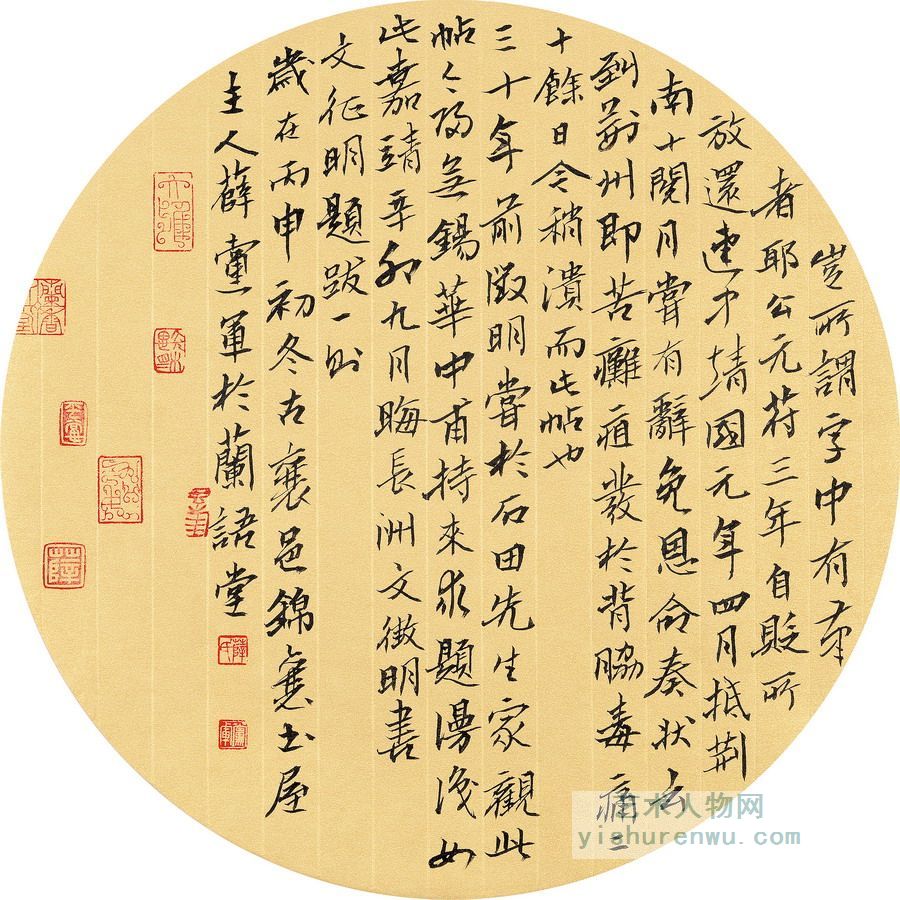 豈所謂字中有筆
者耶公元苻三年自貶所
放還建中靖國元年四月抵荆
南十閱月嘗有辭免恩命奏状云
到荆州即苦癰疽發於背脇毒痛二
十餘日令稍潰而此帖也
三十年前徵明嘗於石田先生家觀此
帖今歸無錫華中甫持來求題漫識如
此嘉靖辛卯九月晦長洲文徵明書
文徵明題跋一則
歲在丙申初冬古襄邑錦襄土屋
主人薛黨軍於蘭語堂
艺术人物网
yishurenwu.com